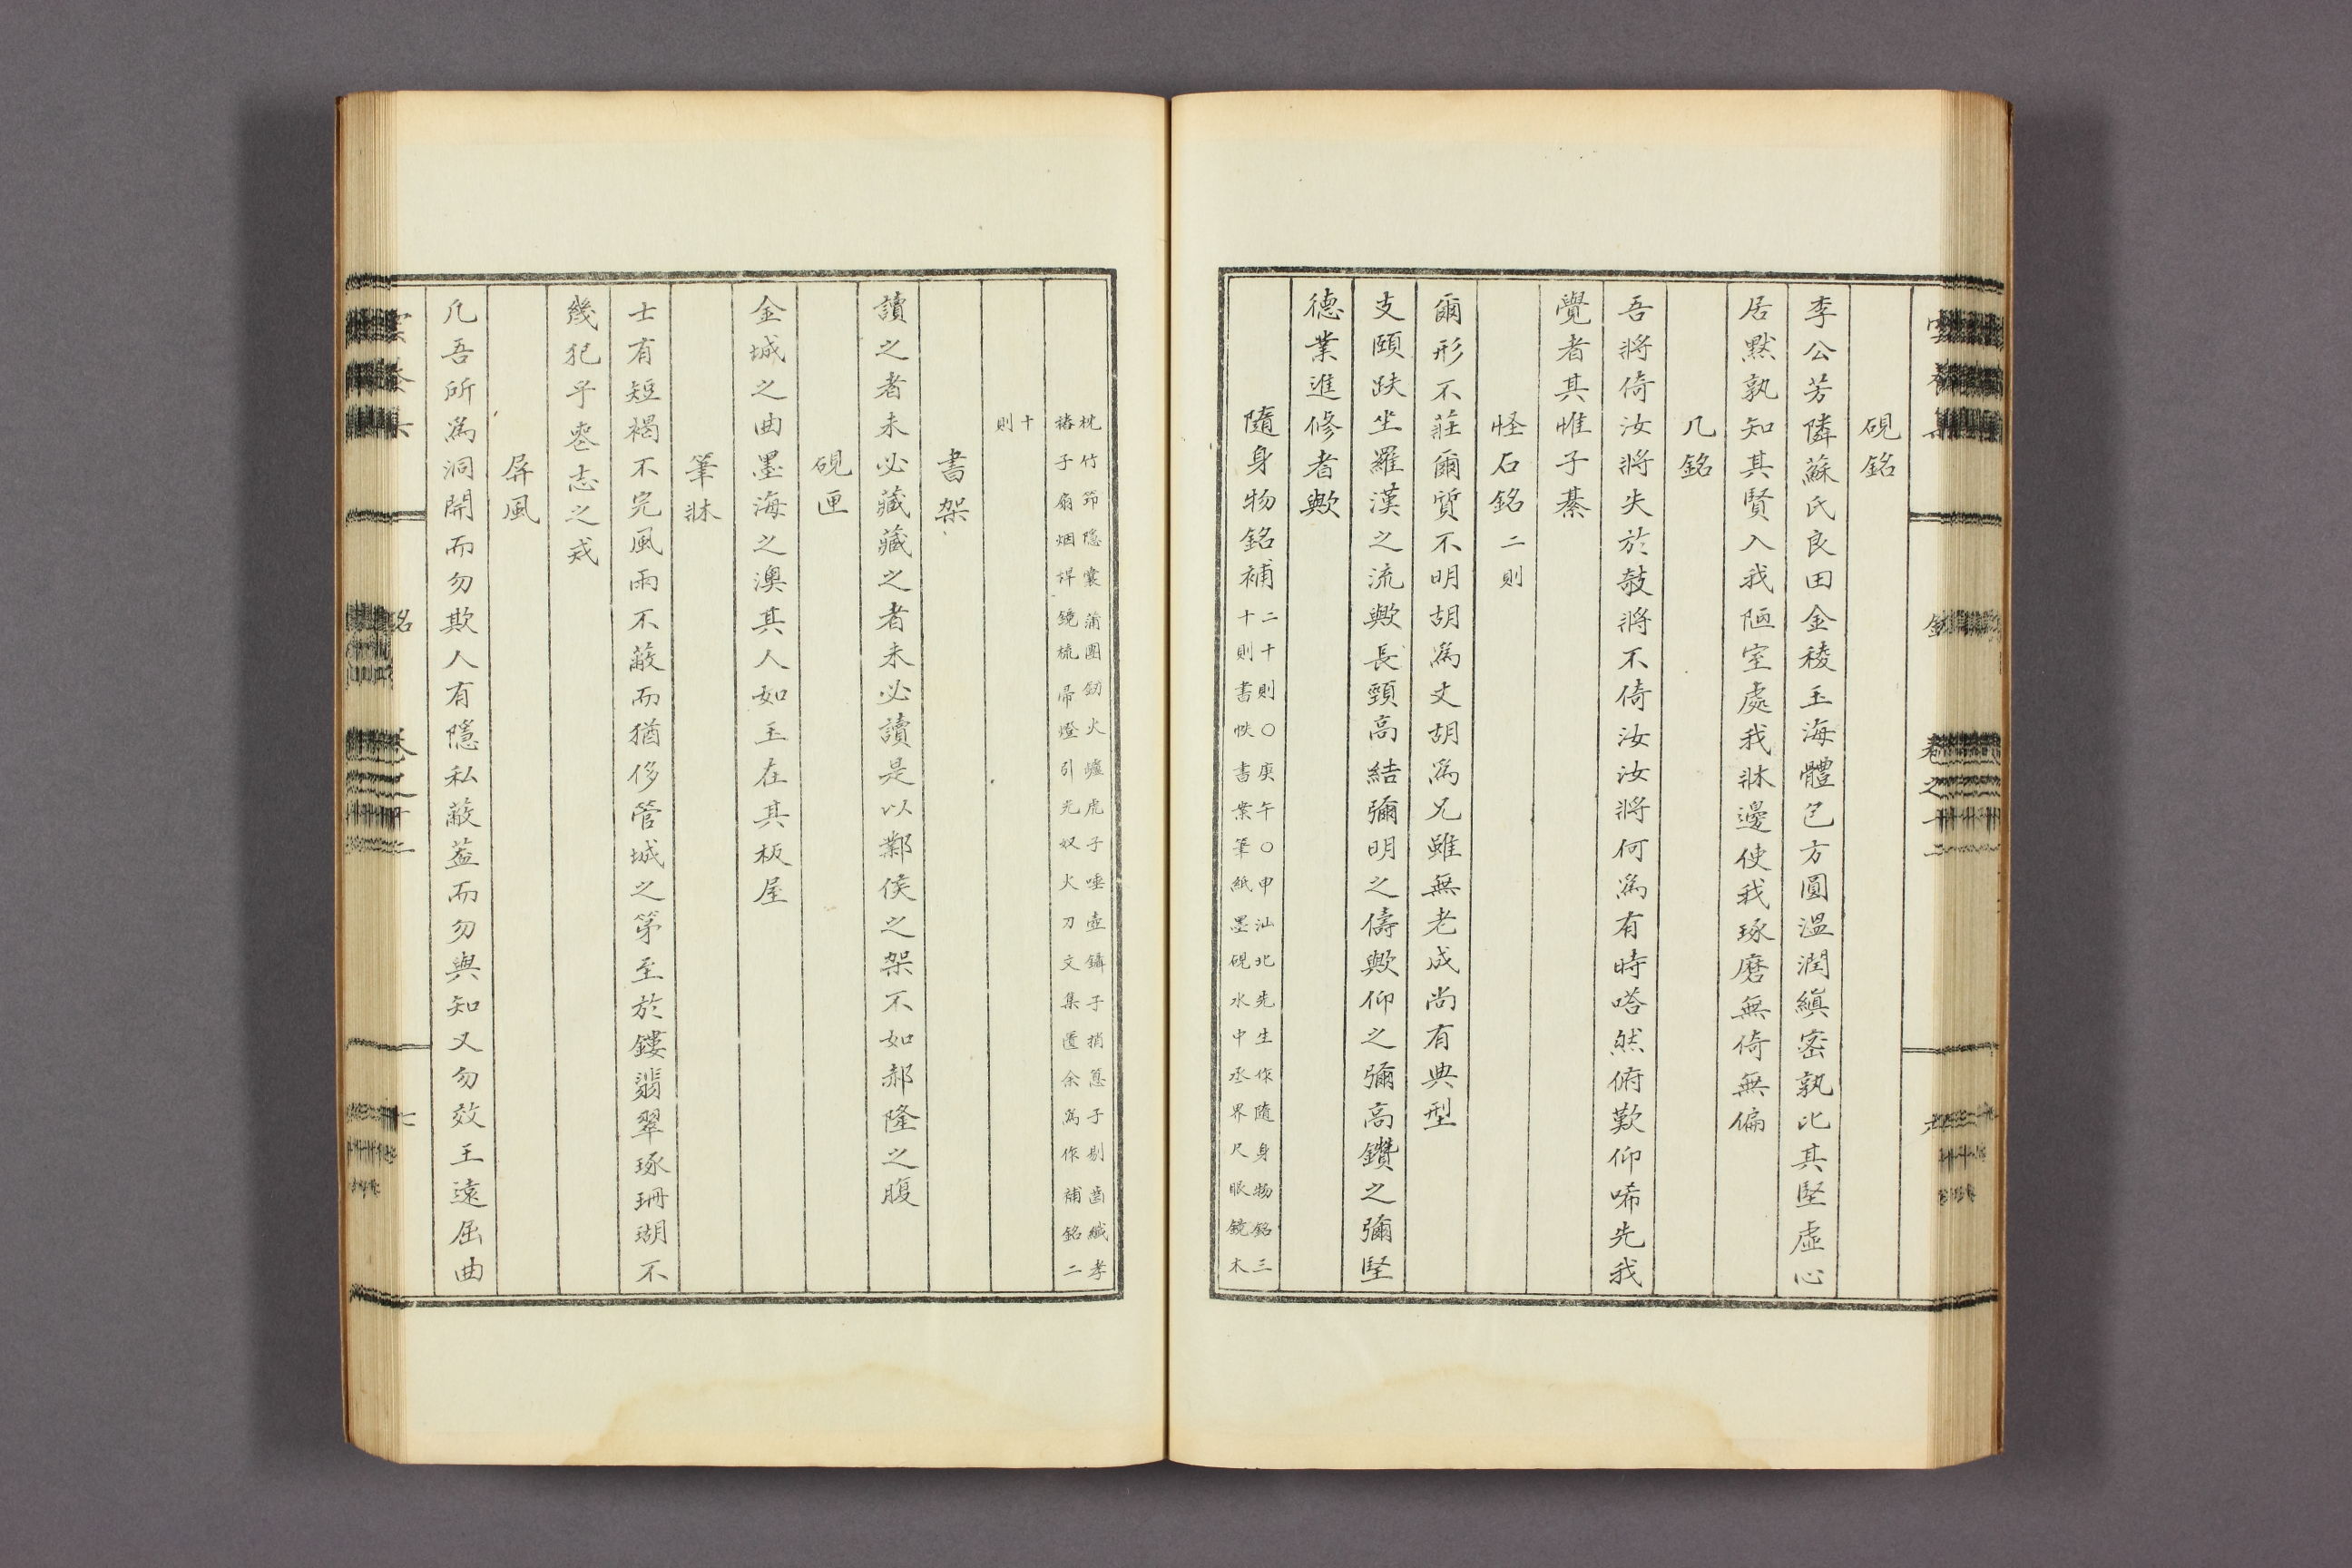 硯銘
李公芳隣蘇氏良田金稜玉海體色方圓溫潤縝密孰比其堅虛心
居默孰知其賢入我陋室處我牀邊使我琢磨無倚無偏
几銘
吾將倚汝將失於攲將不倚汝汝將何爲有時嗒然俯歎仰唏先我
覺者其惟子綦
怪石銘二則
爾形不莊爾質不明胡爲丈胡爲兄雖無老成尚有典型
支頤趺坐羅漢之流歟長頸高結彌明之儔歟仰之彌高鑽之彌堅
德業進修者歟
隨身物銘補
二十則〇庚午〇申汕北先生作隨身物銘三
十則書帙書案筆紙墨硯水中丞界尺眼鏡木
枕竹笻隱囊蒲團劒火爐虎子唾壺鑷子捎箟子剔齒纖孝
褚子扇烟桿鏡梳帚燈引光奴火刀文集匱余爲作補銘二
十
則
書架
讀之者未必藏藏之者未必讀是以鄴侯之架不如郝隆之腹
硯匣
金城之曲墨海之澳其人如玉在其板屋
筆牀
士有短褐不完風雨不蔽而猶侈管城之第至於鏤翡翠琢珊瑚不
幾犯乎喪志之戒
屏風
凡吾所爲洞開而勿欺人有隱私蔽蓋而勿與知又勿效王遠屈曲